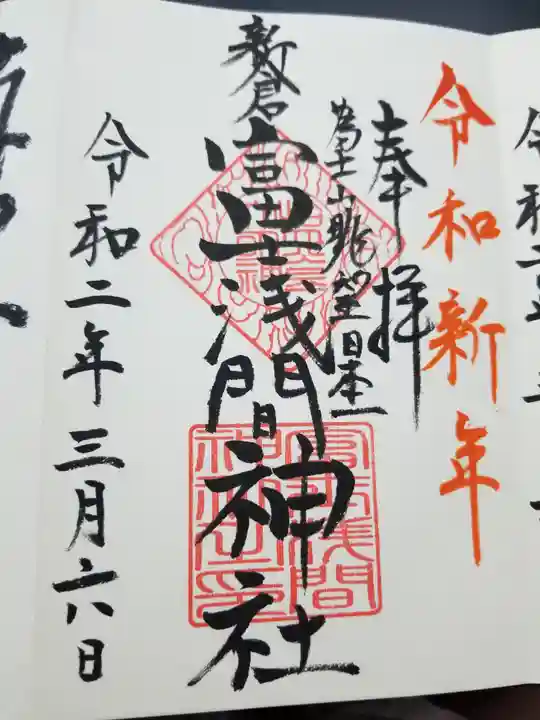 令和二年
令和新年
奉拝
富士山眺望日本一
新倉
富士浅間神社
令和二年三月六日